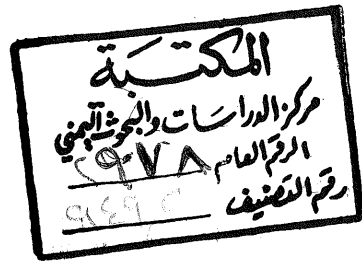 المكتبة
مركز الدراسات والبحوث اليمني
الرقم العام ٢٩٧٨
رقم التصنيف